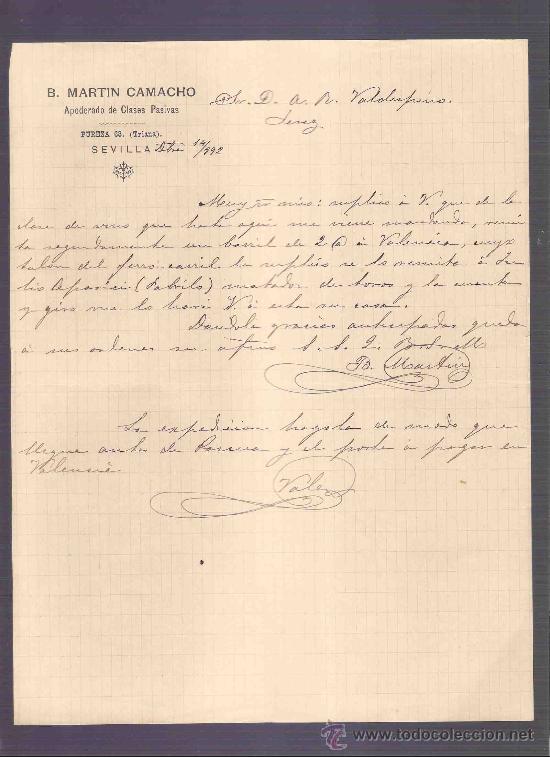 B. MARTIN CAMACHO
Apoderado de Clases Pasivas
PUREZA 68. (Triana).
SEVILLA 14/892
Sr. D. A. R. Valdespino.
Jerez
Muy Sr mio: suplico á V. que de la
clase de vino que hasta aqui me viene mandando, remi
ta seguidamente un barril de 2 @ á Valencia, cuyo
talon del ferro-carril le suplico se lo remita á Ju
lio Aparici (Fabrilo) matador de toros y la cuenta
y giro me lo hará V. á esta su casa.
Dandole gracias anticipadas queda
á sus ordenes su afmo S. S. Q. B. S. M.
B. Martin
La expedicion hagala de modo que
llegue antes de Pascua y el porte á pagar en
Valencia.
Vale
www.todocoleccion.net